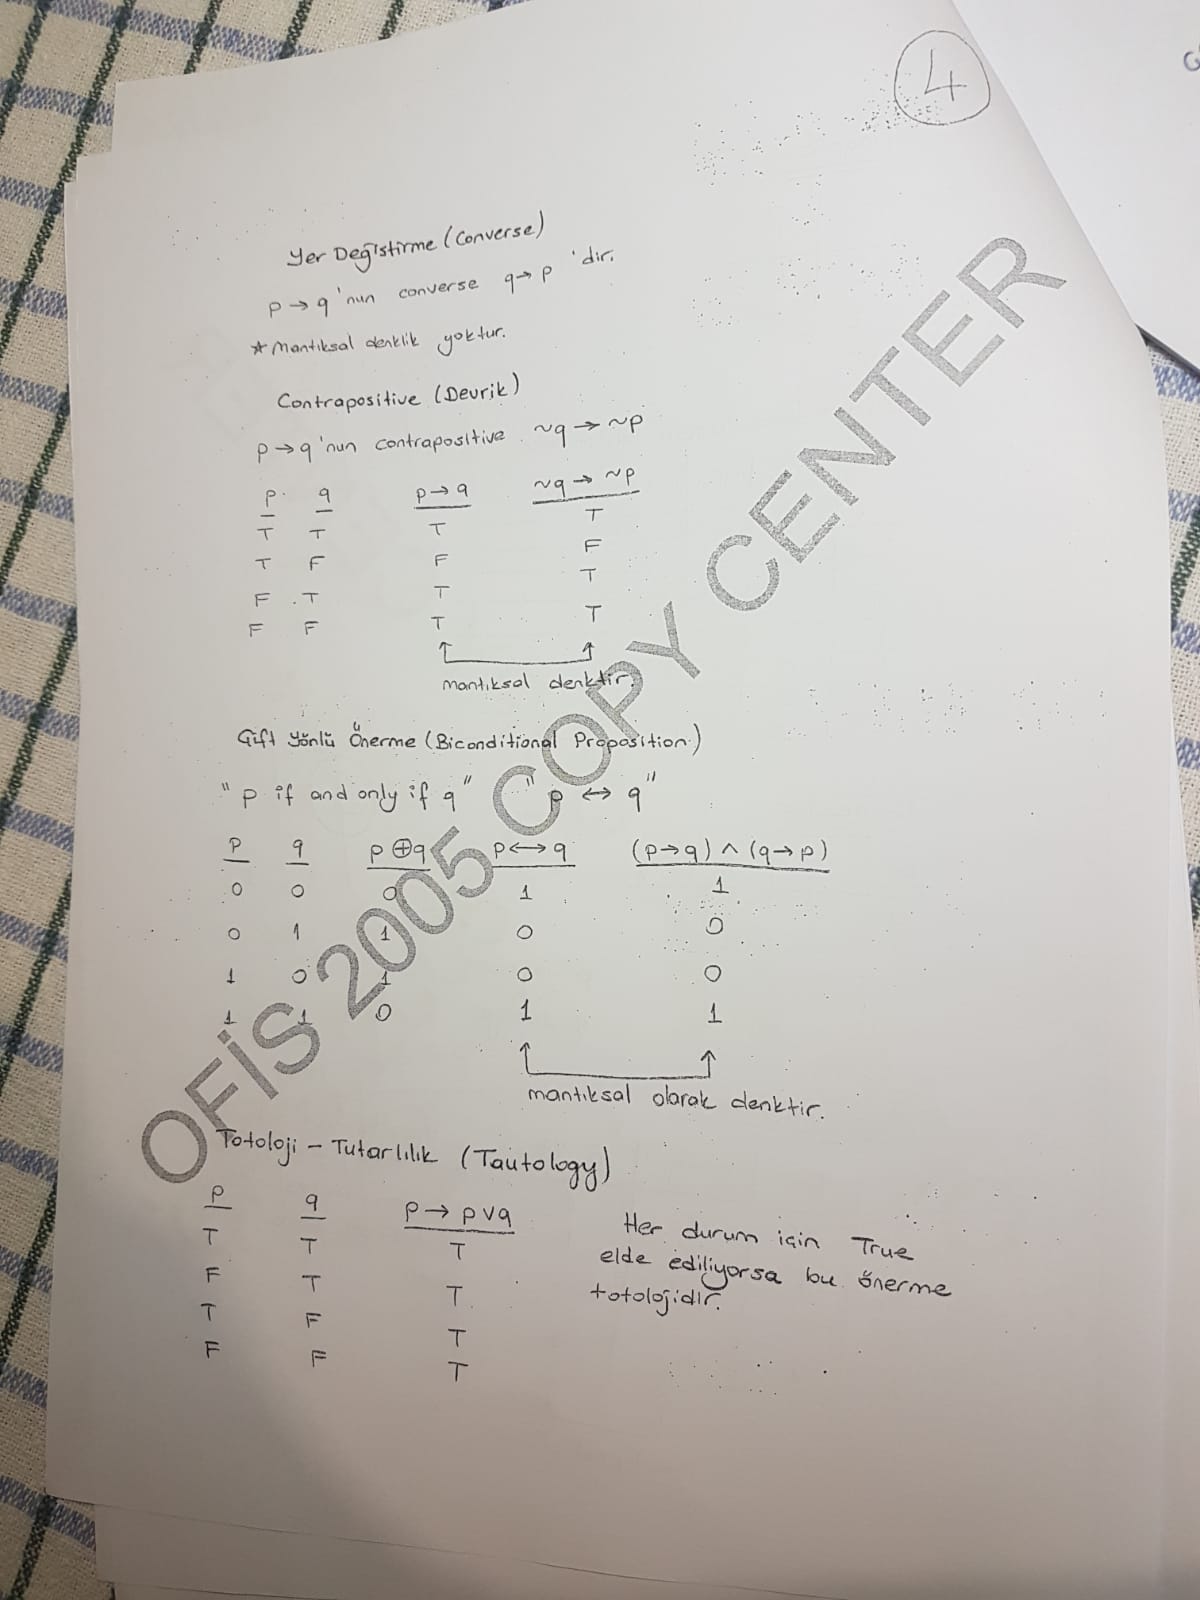 4
Yer Değiştirme (Converse)
p → q 'nun converse q → p 'dir.
* Mantıksal denklik yoktur.
Contrapositive (Devrik)
p → q 'nun contrapositive ~q → ~p
p q p → q ~q → ~p
T T T T
T F F F
F T T T
F F T T
mantıksal denktir.
Çift Yönlü Önerme (Biconditional Proposition)
"p if and only if q" "p ↔ q"
p q p ⊕ q p ↔ q (p → q) ∧ (q → p)
0 0 0 1 1
0 1 1 0 0
1 0 1 0 0
1 1 0 1 1
mantıksal olarak denktir.
Totoloji - Tutarlılık (Tautology)
p q p → p ∨ q
T T T
F T T
T F T
F F T
Her durum için True
elde ediliyorsa bu önerme
totolojidir.
OFİS 2005 COPY CENTER